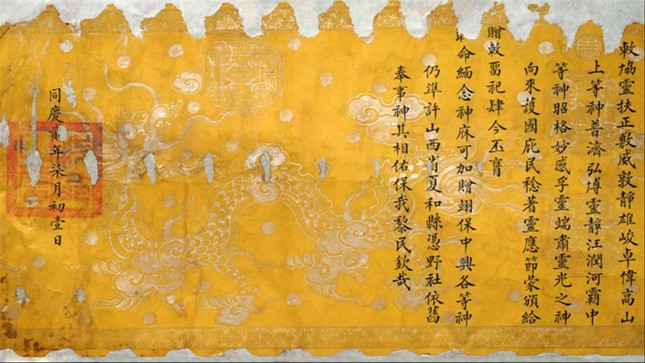 敕協靈扶正敷威敦靜雄峻卓偉高山
上等神普濟弘博靈靜汪潤河霸中
等神昭格妙感孚靈端肅靈光之神
向來護國庇民稔著靈應節蒙頒給
贈敕畱祀肆今丕膺
命緬念神庥可加贈翊保中興各等神
仍準許山西省夏和縣憑野社依舊
奉事神其相佑保我黎民欽哉
同慶 年柒月初壹日